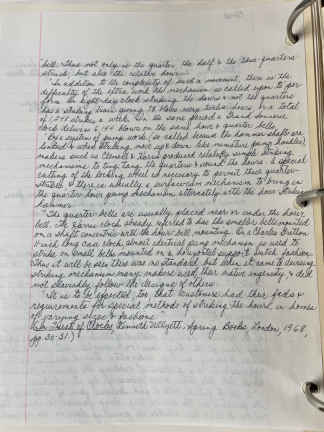 bell. Thus not only is the quarter, the half & the three-quarters
struck, but also the
"In addition to the complexity of such a movement, there is the
difficulty of the extra work the mechanism is called upon to per-
form. An eight-day clock striking the hours & not the quarters
has a striking train giving 78 blows every twelve hours, or a total
of 1,248 strikes a week. In the same period a Grand Sonnerie
clock delivers 6,144 blows on the same hour & quarter bells.
"By a system of pump work, so called because the hammer shafts are
when striking, move up & down like miniature pump handles,
makers such as & Hersé produced relatively simple striking
mechanisms to ting tang the quarters & sound the hours. A special
cutting of the locking wheel is necessary to permit this quarter
striking & there is usually a mechanism to bring in
the quarter hour pump mechanism alternately with the hour striking
hammer.
"The quarter bells are usually placed near or under the hour
bell. The clock already referred to has the smaller bells mounted
on a shaft concentric with the hour bell mounting. On a Charles Gretton
long case clock almost identical pump mechanism is used to
strike on small bells mounted on a support Dutch fashion.
Thus it will be seen there was no standard but when it came to devising
striking mechanisms many makers used their native ingenuity & did
not slavishly follow the designs of others.
"It is to be expected, too, that customers had their fads &
requirements for special methods of striking the hours in houses
of varying sizes & fashions."
of Clocks, Kenneth Ullyett, Spring Books London, 1968,
pg 30-31.)